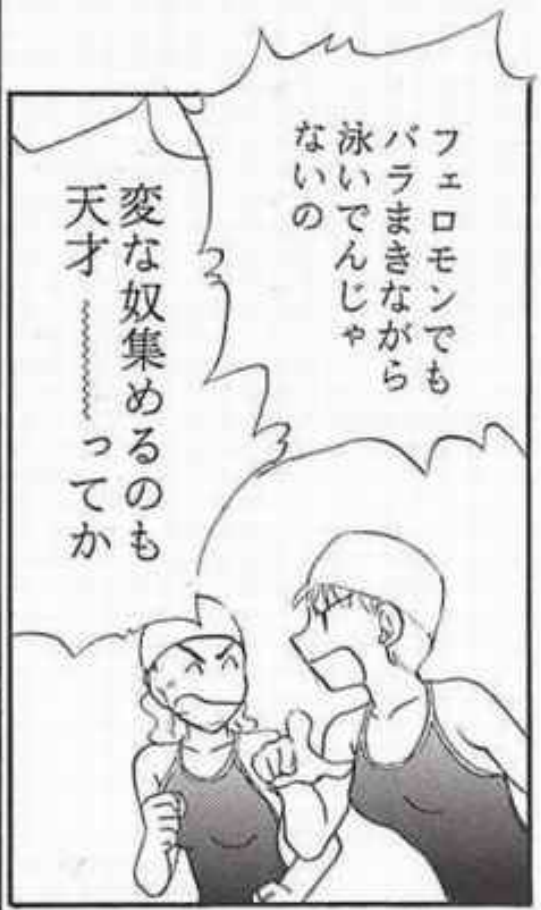 フェロモンでも
バラまきながら
泳いでんじゃ
ないの
変な奴集めるのも
天才〰〰ってか